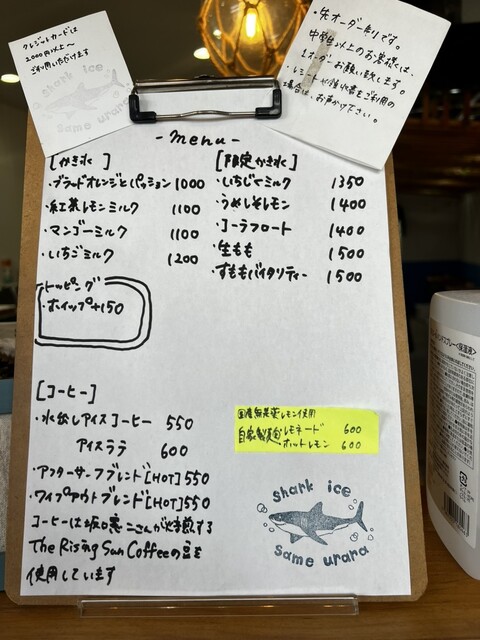 クレジットカードは
2,000円以上〜
ご利用いただけます
・先オーダー制です。
中学生以上のお客様は、
1オーダーお願い致します。
・レシートや領収書をご利用の
場合は、お声がけ下さい。
-menu-
[かき氷]
・ブラッドオレンジとパッション 1000
・紅茶レモンミルク 1100
・マンゴーミルク 1100
・いちごミルク 1200
トッピング
・ホイップ+150
[限定かき氷]
・いちじくミルク 1350
・うめしそレモン 1400
・コーラフロート 1400
・生もも 1500
・すももバイタリティー 1500
[コーヒー]
・水出しアイスコーヒー 550
アイスラテ 600
・アフターサーフブレンド[HOT]550
・ワイプアウトブレンド[HOT]550
コーヒーは坂口憲二さんが手掛ける
The Rising Sun Coffeeの豆を
使用しています
国産無農薬レモン使用
自家製麹レモネード 600
ホットレモン 600
shark ice
same urara